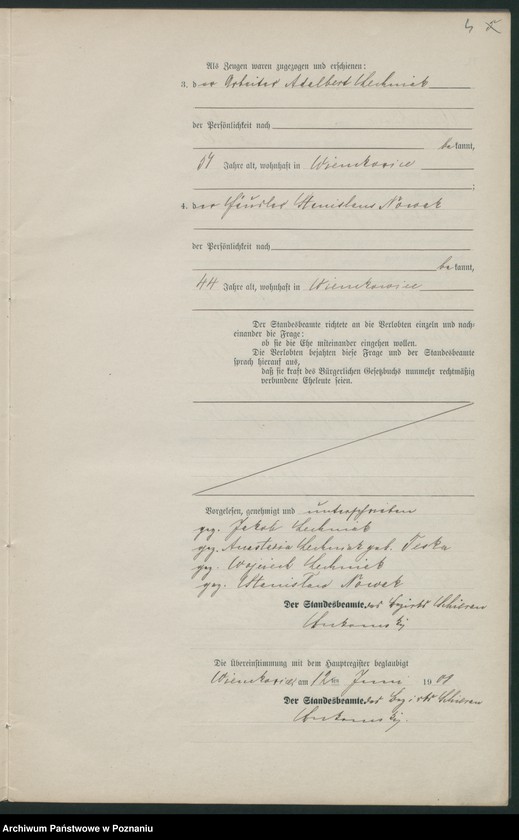 4
Als Zeugen waren zugezogen und erschienen:
3. der Arbeiter Adalbert Lechniak
der Persönlichkeit nach
bekannt,
Jahre alt, wohnhaft in
4. der Häusler Stanislaus Nowak
der Persönlichkeit nach
bekannt,
44 Jahre alt, wohnhaft in
Der Standesbeamte richtete an die Verlobten einzeln und nach-
einander die Frage:
ob sie die Ehe miteinander eingehen wollen.
Die Verlobten bejahten diese Frage und der Standesbeamte
sprach hierauf aus,
daß sie kraft des Bürgerlichen Gesetzbuchs nunmehr rechtmäßig
verbundene Eheleute seien.
Vorgelesen, genehmigt und unterschrieben
gez. Jakob Lechniak
gez. Anastasia Lechniak geb. Teska
gez. Wojciech Lechniak
gez. Stanisław Nowak
Der Standesbeamte des Bezirks
Die Übereinstimmung mit dem Hauptregister beglaubigt
am 12ten Juni 190
Der Standesbeamte des Bezirks
Archiwum Państwowe w Poznaniu